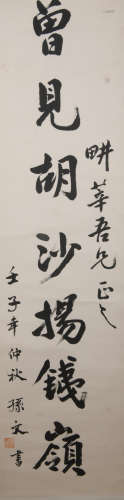 曾見胡沙揚錢嶺
畊莘吾兄正之
壬子年仲秋孫文書